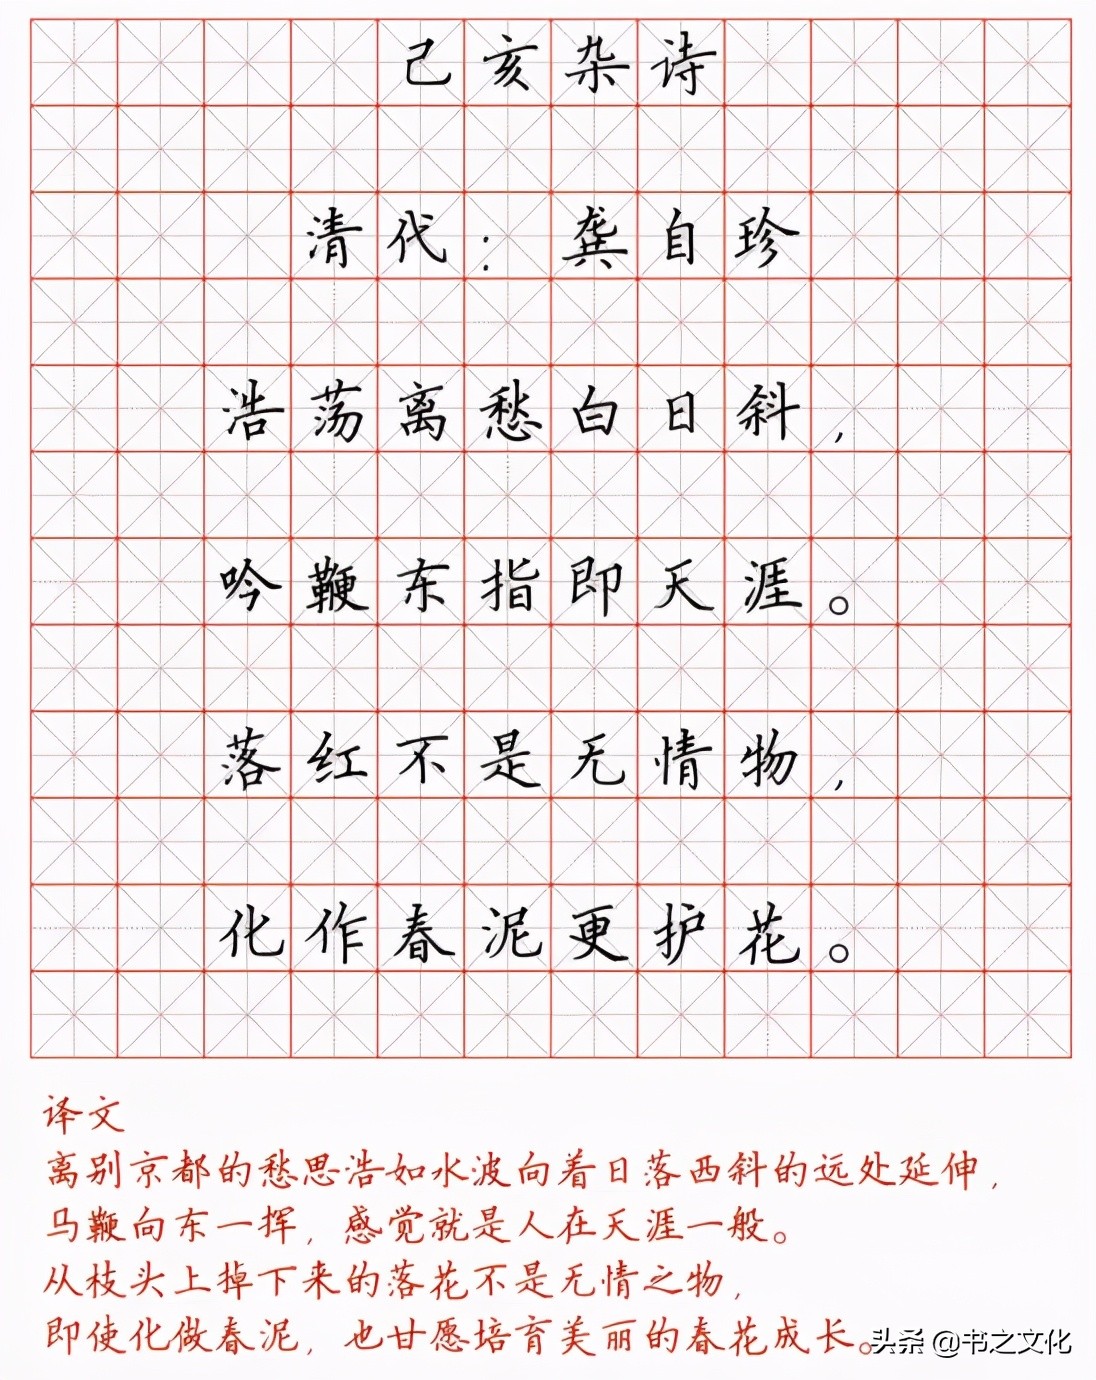 己亥杂诗
清代：龚自珍
浩荡离愁白日斜，
吟鞭东指即天涯。
落红不是无情物，
化作春泥更护花。
译文
离别京都的愁思浩如水波向着日落西斜的远处延伸，
马鞭向东一挥，感觉就是人在天涯一般。
从枝头上掉下来的落花不是无情之物，
即使化做春泥，也甘愿培育美丽的春花成长。
头条 @书之文化